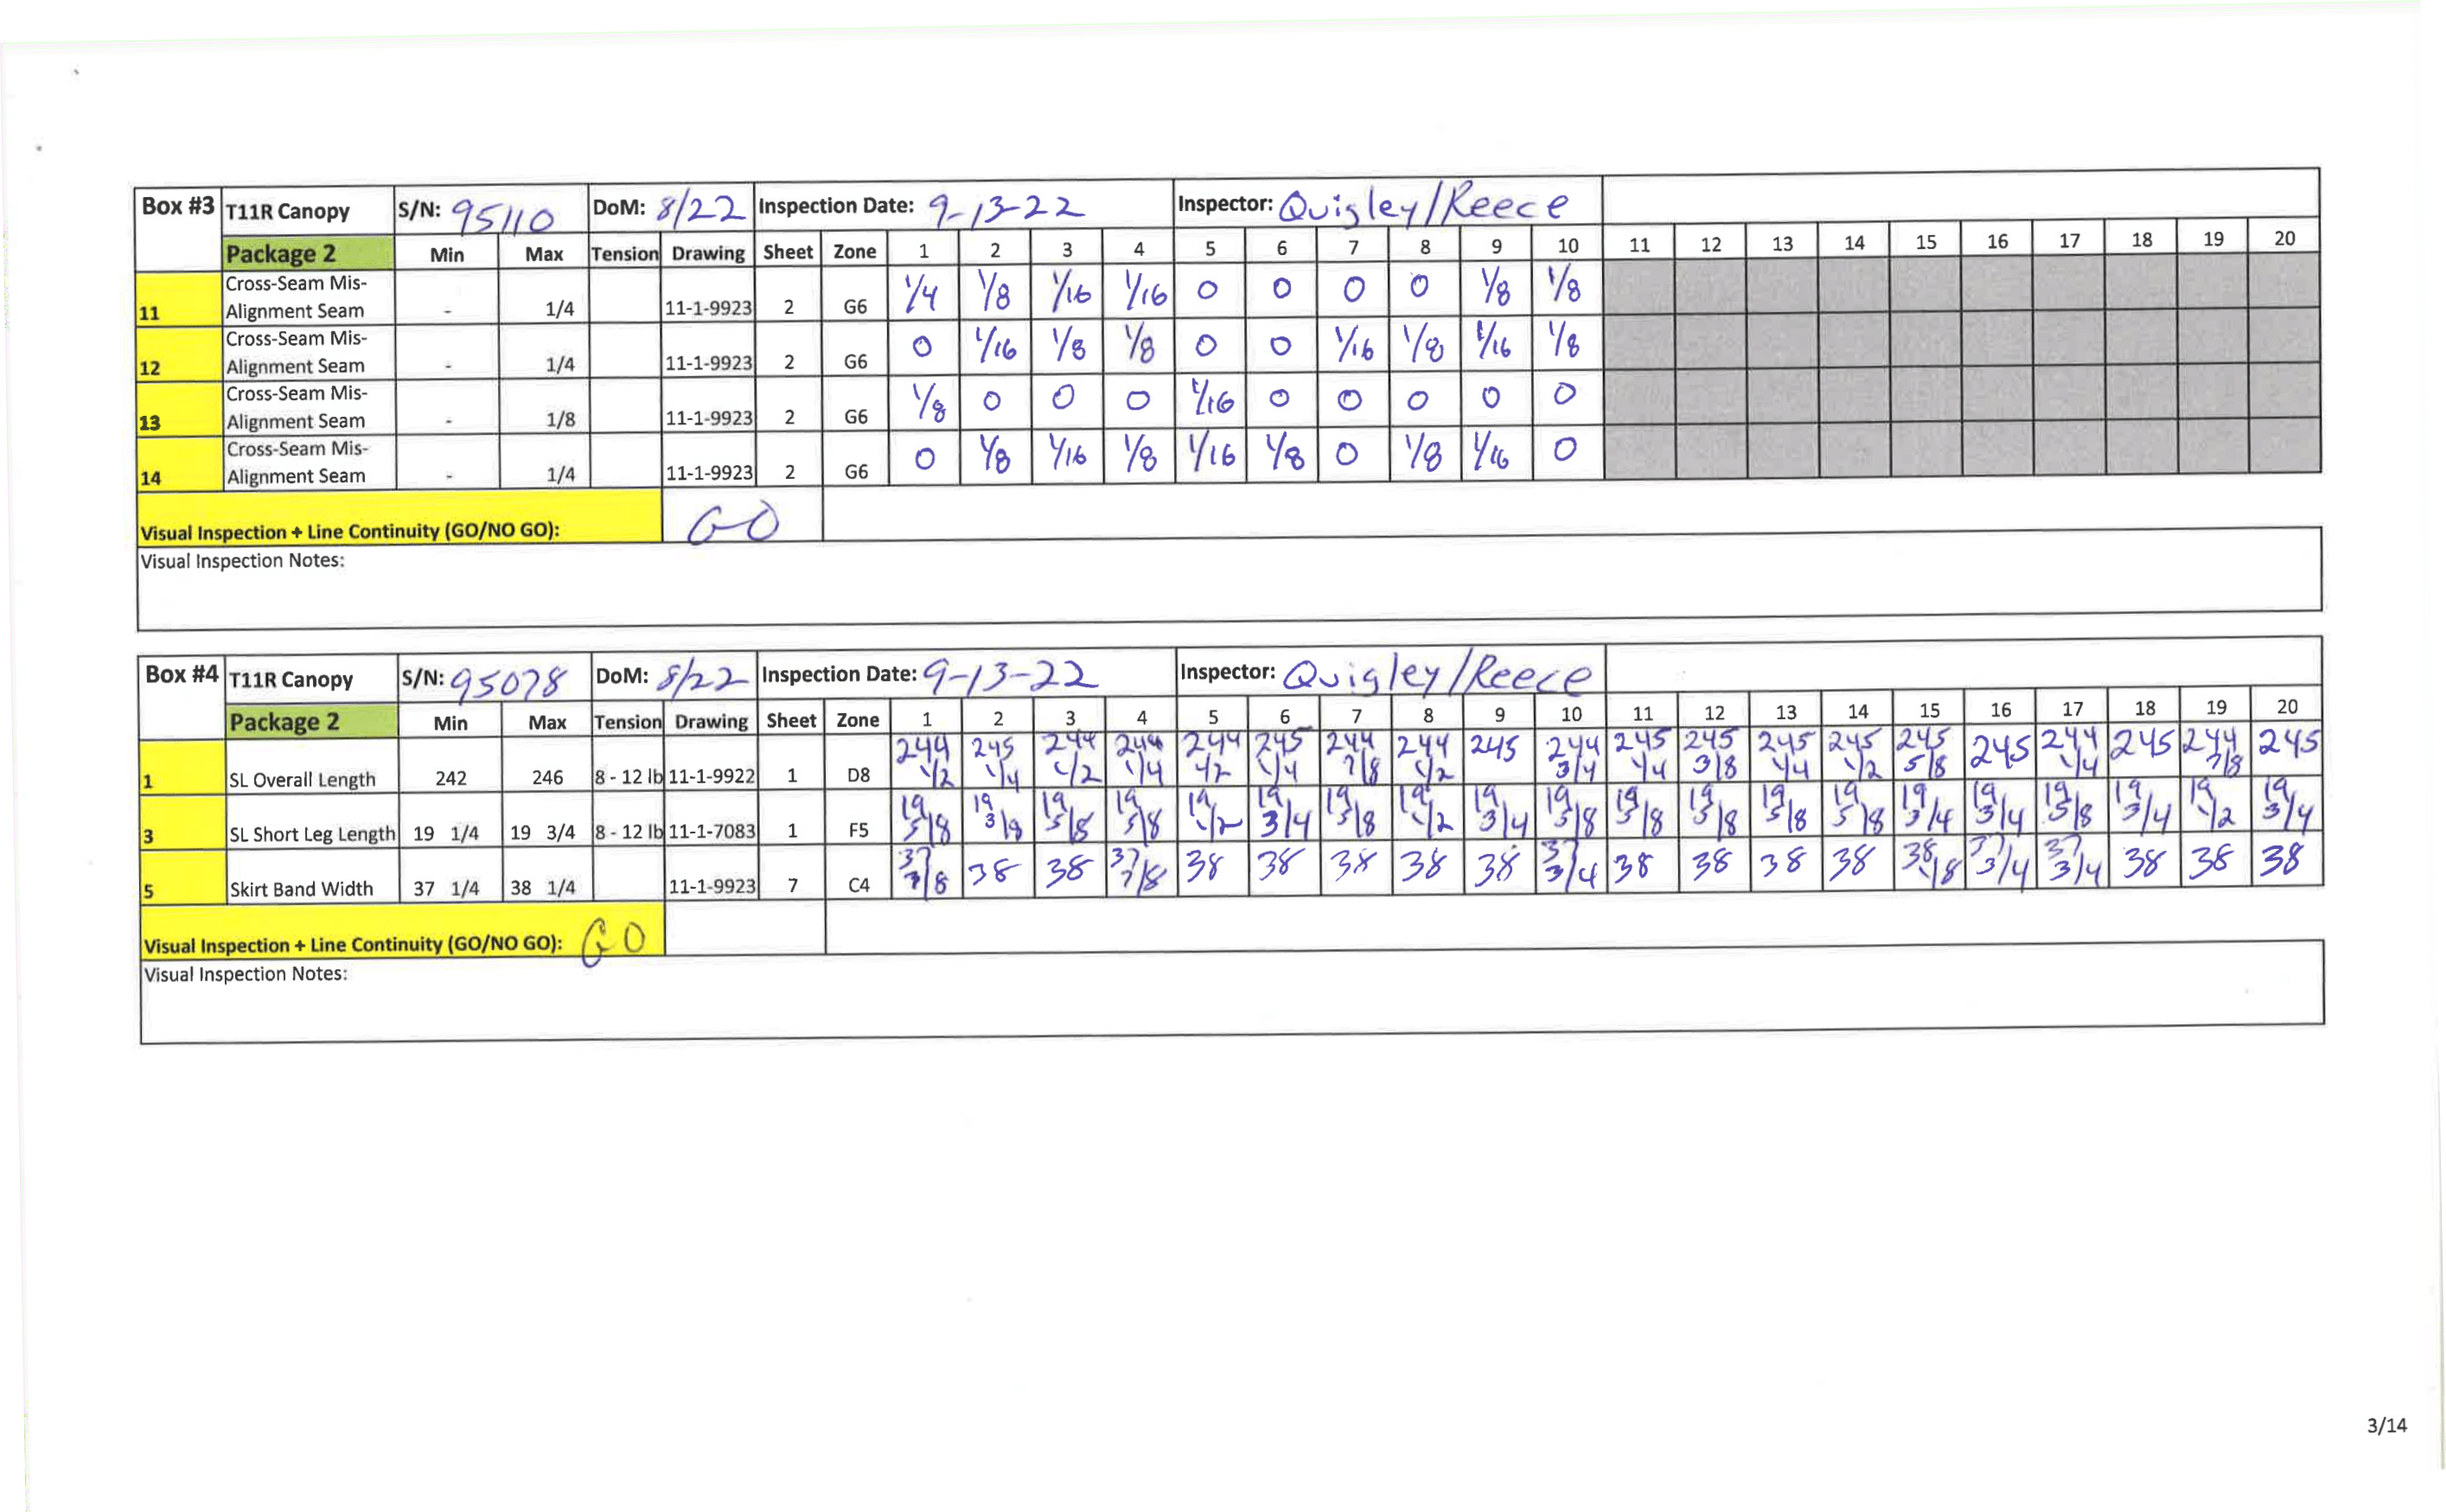 Box #3 T11R Canopy S/N: 95110 DoM: 8/22 Inspection Date: 9-13-22 Inspector: Quigley/Reece
Package 2 Min Max Tension Drawing Sheet Zone 1 2 3 4 5 6 7 8 9 10 11 12 13 14 15 16 17 18 19 20
11 Cross-Seam Mis-Alignment Seam - 1/4 11-1-9923 2 G6 1/4 1/8 1/16 1/16 0 0 0 0 1/8 1/8
12 Cross-Seam Mis-Alignment Seam - 1/4 11-1-9923 2 G6 0 1/16 1/8 1/8 0 0 1/16 1/8 1/16 1/8
13 Cross-Seam Mis-Alignment Seam - 1/8 11-1-9923 2 G6 1/8 0 0 0 1/16 0 0 0 0 0
14 Cross-Seam Mis-Alignment Seam - 1/4 11-1-9923 2 G6 0 1/8 1/16 1/8 1/16 1/8 0 1/8 1/16 0
Visual Inspection + Line Continuity (GO/NO GO): GO
Visual Inspection Notes:
Box #4 T11R Canopy S/N: 95078 DoM: 8/22 Inspection Date: 9-13-22 Inspector: Quigley/Reece
Package 2 Min Max Tension Drawing Sheet Zone 1 2 3 4 5 6 7 8 9 10 11 12 13 14 15 16 17 18 19 20
1 SL Overall Length 242 246 8 - 12 lb 11-1-9922 1 D8 244 1/2 245 1/4 244 1/2 244 1/4 244 1/2 245 1/4 244 7/8 244 1/2 245 244 3/4 245 1/4 245 3/8 245 1/4 245 1/2 245 5/8 245 244 1/4 245 244 7/8 245
3 SL Short Leg Length 19 1/4 19 3/4 8 - 12 lb 11-1-7083 1 F5 19 5/8 19 3/8 19 5/8 19 5/8 19 1/2 19 3/4 19 5/8 19 1/2 19 3/4 19 5/8 19 5/8 19 5/8 19 5/8 19 5/8 19 3/4 19 3/4 19 5/8 19 3/4 19 1/2 19 3/4
5 Skirt Band Width 37 1/4 38 1/4 11-1-9923 7 C4 37 7/8 38 38 37 7/8 38 38 38 38 38 37 3/4 38 38 38 38 38 1/8 37 3/4 37 3/4 38 38 38
Visual Inspection + Line Continuity (GO/NO GO): GO
Visual Inspection Notes:
3/14